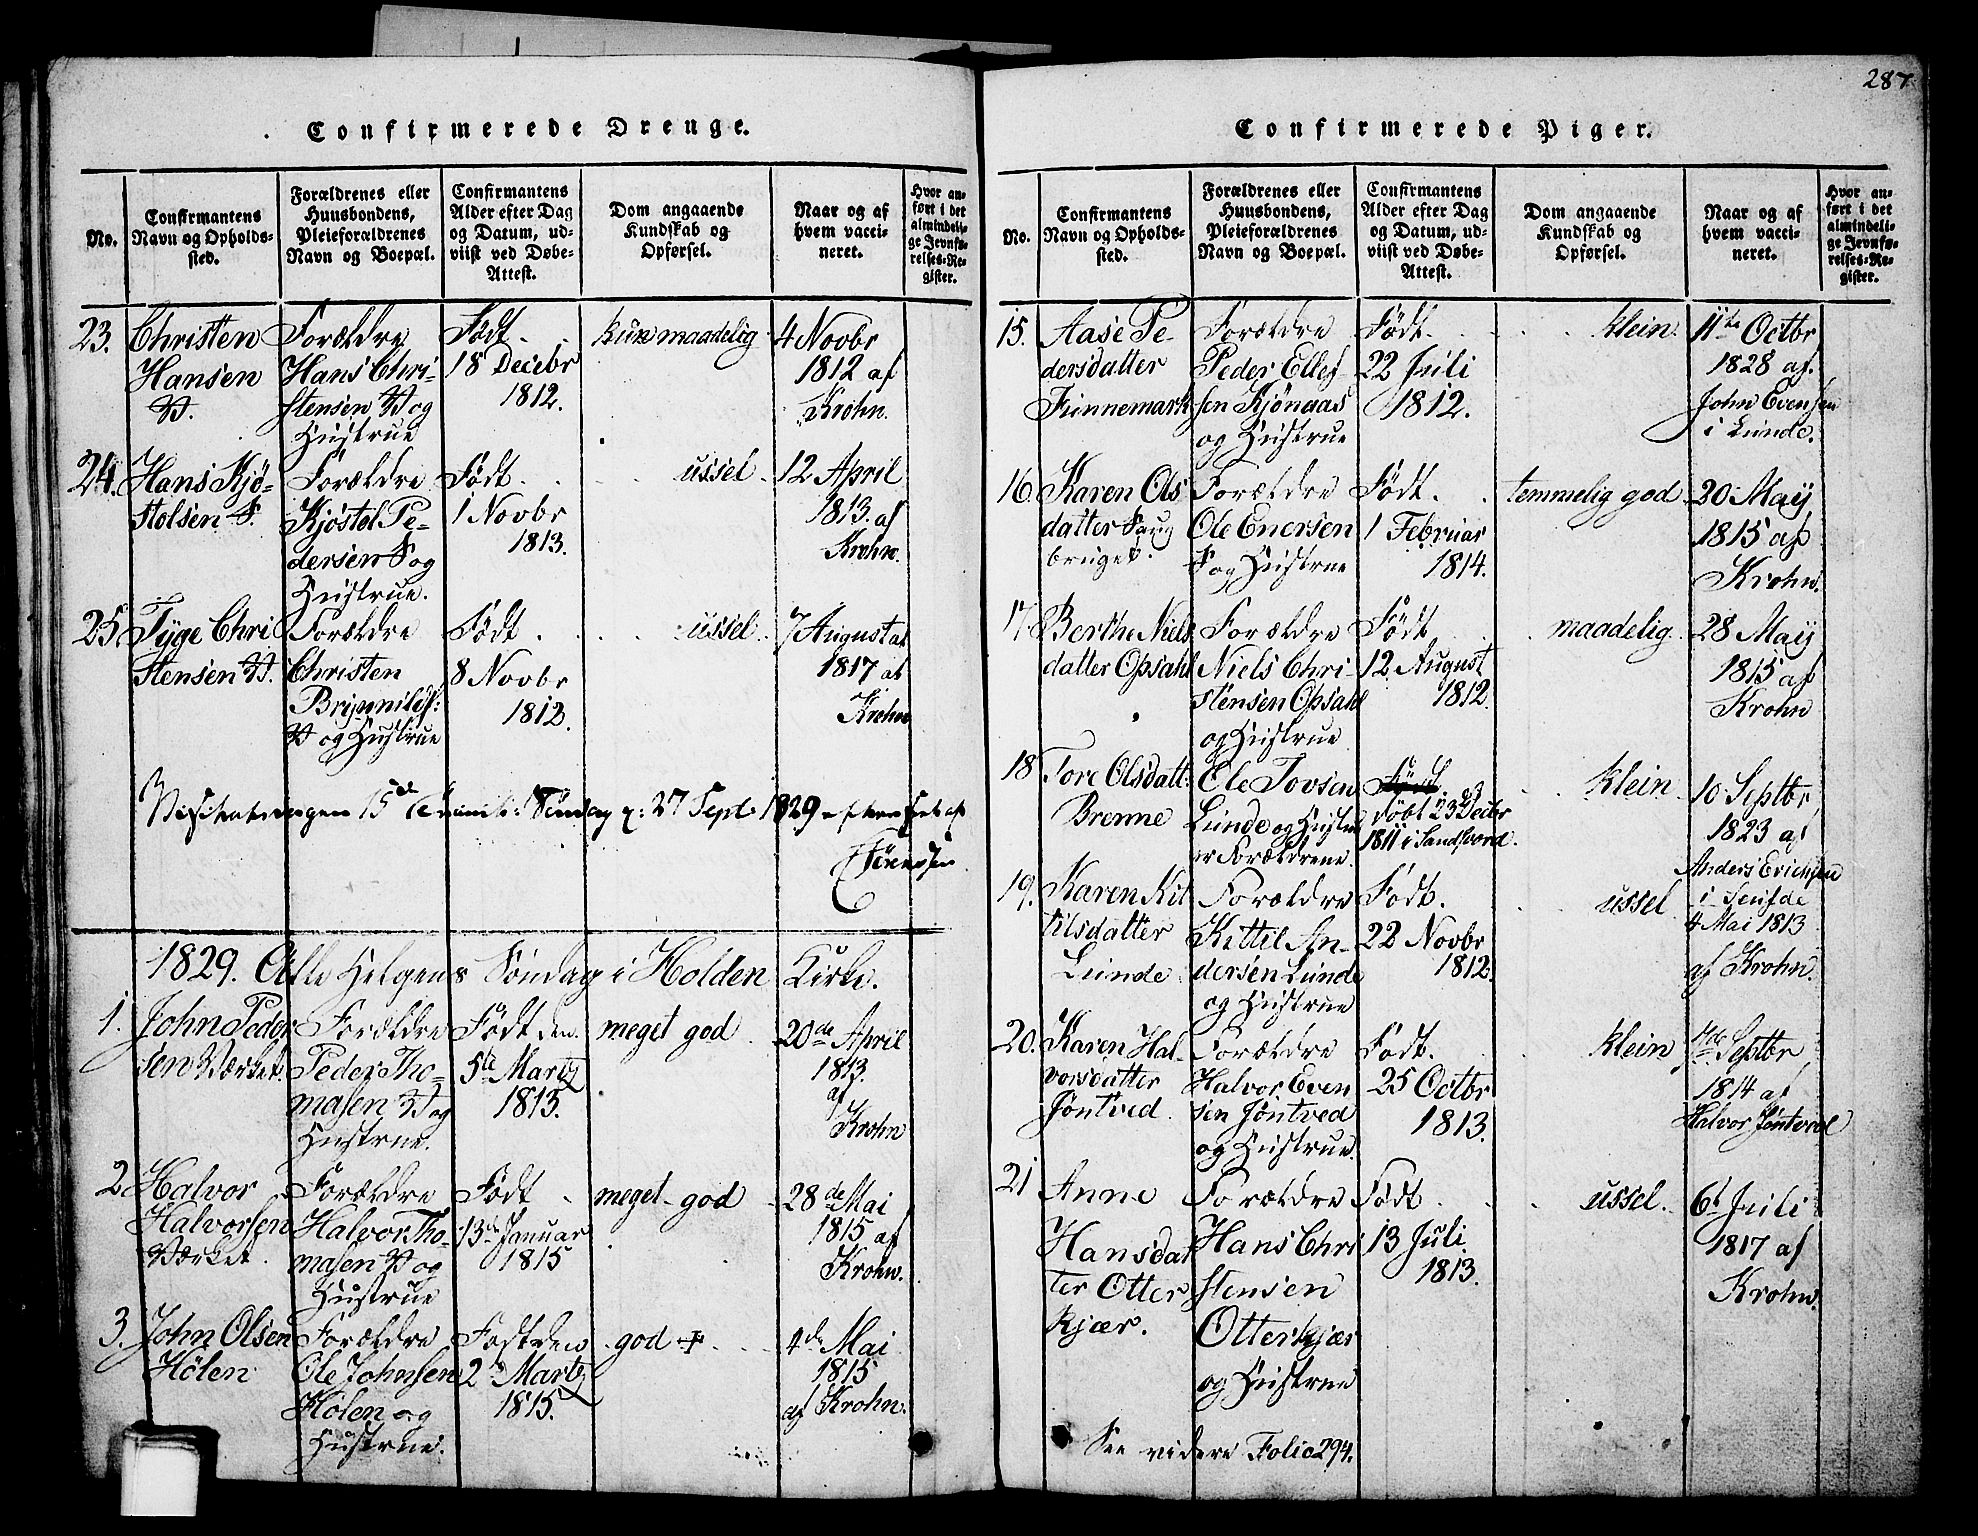 287
Confirmerede Drenge.
No.
Confirmantens
Navn og Opholds-
sted.
Forældrenes eller
Huusbondens,
Pleieforældrenes
Navn og Boepæl.
Confirmantens
Alder efter Dag
og Datum, ud-
viist ved Døbe-
Attest.
Dom angaaende
Kundskab og
Opførsel.
Naar og af
hvem vacci-
neret.
Hvor an-
ført i det
almindeli-
ge Jevnfø-
relses-Re-
gister.
23.
Christen
Hansen
V.
Forældre
Hans Chri-
stensen V og
Hustrue
Født.
18 Decebr
1812.
kun maadelig
4 Novbr
1812 af
Krohn.
24.
Hans Kjø-
stolsen S.
Forældre
Kjøstol Pe-
dersen S og
Hustrue.
Født.
1 Novbr
1813.
ussel.
12 April
1813. af
Krohn.
25.
Tyge Chri
stensen V.
Forældre
Christen
V og Hustrue
Født.
8 Novbr
1812.
ussel.
7 August
1817 af
Krohn
15de Søndag 27 Sept. 1829
1829. Alle Helgens Søndag i Holden Kirke.
1.
John Peder
sen Værket.
Forældre
Peder Tho-
masen V og
Hustrue.
Født den
5te Martz
1813.
meget god
20de April
1813.
af
Krohn
2
Halvor
Halvorsen
Værket.
Forældre
Halvor Tho-
masen V og
Hustrue
Født
13de Januar
1815
meget god
28de Mai
1815 af
Krohn.
3.
John Olsen
Holen
Forældre
Ole Johnsen
Holen og
Hustrue.
Født den
2 Martz
1815.
god +
4de Mai
1815
af Krohn.
Confirmerede Piger.
No.
Confirmantens
Navn og Opholds-
sted.
Forældrenes eller
Huusbondens,
Pleieforældrenes
Navn og Boepæl.
Confirmantens
Alder efter Dag
og Datum, ud-
viist ved Døbe-
Attest.
Dom angaaende
Kundskab og
Opførsel.
Naar og af
hvem vacci-
neret.
Hvor an-
ført i det
almindeli-
ge Jevnfø-
relses-Re-
gister.
15.
Aase Pe-
dersdatter
Finnemark
Forældre
Peder Ellef-
sen Kjønaas
og Hustrue
Født.
22 Juli
1812.
klein.
11te Octbr
1828 af.
John Evensen
i Lunde.
16.
Karen Ols
datter Saug
bruget.
Forældre
Ole Enersen
S og Hustrue
Født.
1 Februar
1814.
temmelig god
20 May
1815 af
Krohn.
17.
Berthe Niels
datter Opsahl
Forældre
Niels Chri-
stensen Opsahl
og Hustrue
Født
12 August
1812.
maadelig.
28 May
1815 af
Krohn
18
Tore Olsdatt:
Brenne
Ole Tovsen
Lunde og Hustru
er Forældrene.
Født.
Døbt 23 Decbr
1811 i Sandsverd.
klein.
10 Septbr
1823 af
Anders Erichsen
i
19.
Karen Kit
tilsdatter
Lunde
Forældre
Kittil An-
dersen Lunde
og Hustrue
Født.
22 Novbr
1812
ussel
4 Mai 1813
af Krohn.
20.
Karen Hal-
vorsdatter
Jøntved.
Forældre
Halvor Even
sen Jøntved
og Hustrue.
Født.
25 Octbr
1813.
klein
Septbr
1814 af
Halvor Jøntved
21
Anne
Hansdat
ter Otter
kjær.
Forældre
Hans Chri
stensen
Otterkjær
og Hustrue
Født
13 Juli
1813.
ussel.
6t Juli
1817 af
Krohn.
See videre Folio 294.